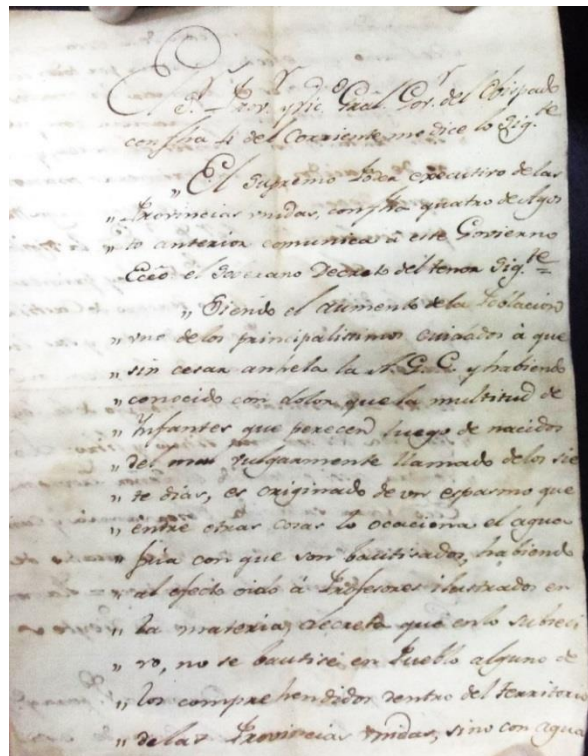 El S.r Prov.r y Vic.o Gral. Gov.r del Obispado
con fha 4 del Corriente me dice lo Sig.te
„ El Supremo Poder executivo de las
„ Provincias unidas, con fha quatro de Agos
„ to anterior comunica à este Govierno
Ecco el Soverano Decreto del tenor Sig.te =
„ Siendo el aumento de la Poblacion
„ uno de los principalisimos cuidados à que
„ sin cesar anhela la A. G. C. y habiendo
„ conocido con dolor que la multitud de
„ Infantes que perecen luego de nacidos
„ del mal vulgarmente llamado de los sie
„ te dias, es originado de un espasmo que
„ entre otras cosas lo ocaciona el agua
„ fria con que son bautizados, habiendo
„ al efecto oido à Profesores ilustrados en
„ la materia, decreta que en lo subceci
„ vo, no se bautise en Pueblo alguno de
„ los comprehendidos dentro del territorio
„ de las Provincias unidas, sino con agua